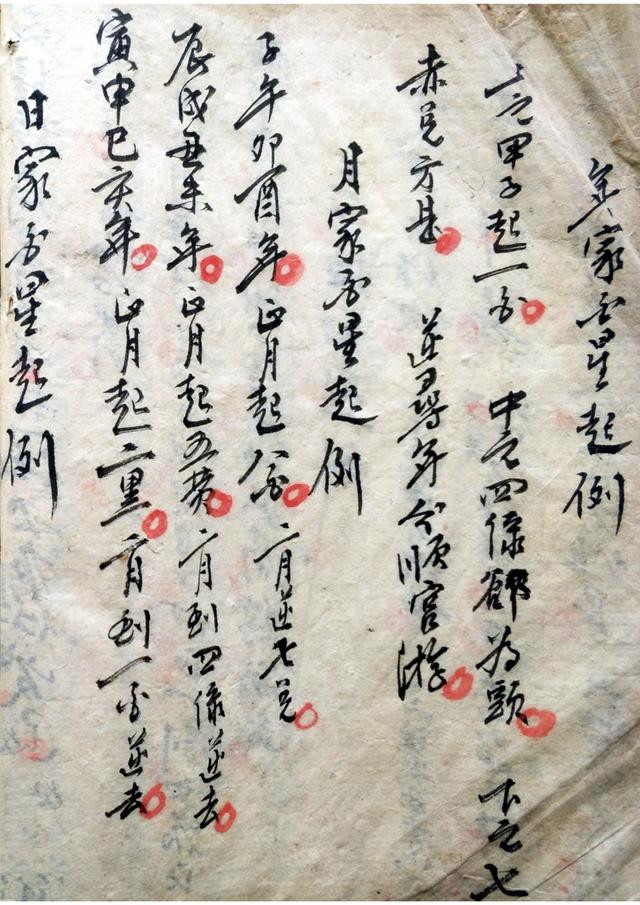 年家白星起例
上元甲子起一白 中元四條龝为頭 下元七
赤兑方是 逆尋年分順宫游
月家白星起例
子午卯酉年正月起八白 二月逆七兑
辰戌丑未年正月起五黄 二月到四條逆去
寅申巳亥年正月起二黑 二月到一白逆去
日家白星起例